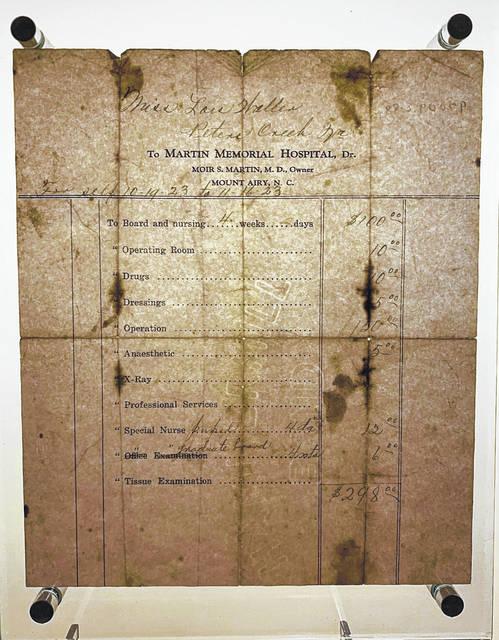 Miss Lois Walker
Peters Creek Va
To MARTIN MEMORIAL HOSPITAL, Dr.
MOIR S. MARTIN, M. D., Owner
MOUNT AIRY, N. C.
For 10-19-23 to 11-16-23
To Board and nursing 4 weeks......days $100 00
" Operating Room 10 00
" Drugs 00
" Dressings 5 00
" Operation 00
" Anaesthetic 5 00
" X-Ray
" Professional Services
" Special Nurse 4 ds 12 00
" Office Examination graduate board 6 00
" Tissue Examination
$298 00